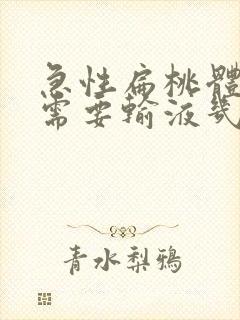 急性扁桃體
需要輸液幾
青水梨鴉